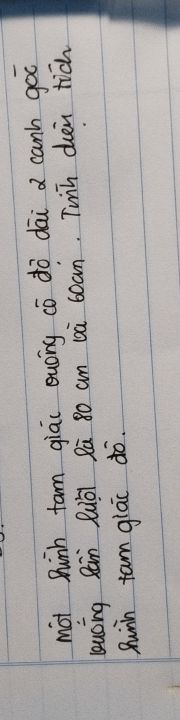 Một hình tam giác vuông có độ dài 2 cạnh góc
vuông lần lượt là 80 cm và 60cm. Tính diện tích
hình tam giác đó.